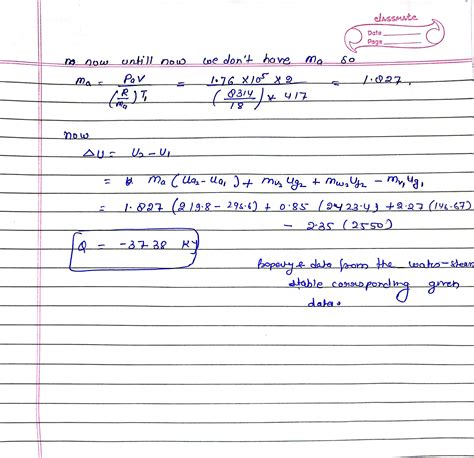 classmate
Date
Page
now untill now we don't have ma so
ma = PaV / (R/ma) T1 = 1.76 × 10^5 × 2 / (8314/18) × 417 = 1.827.
now
ΔU = U2 - U1
= ma (ua2 - ua1) + mv2 ug2 + mw2 uf2 - mv1 ug1
= 1.827 (219.8 - 296.6) + 0.85 (2423.4) + 2.27 (146.67)
- 2.35 (2550)
Q = -3738 KJ
Property data from the water-steam
stable corresponding given
data.